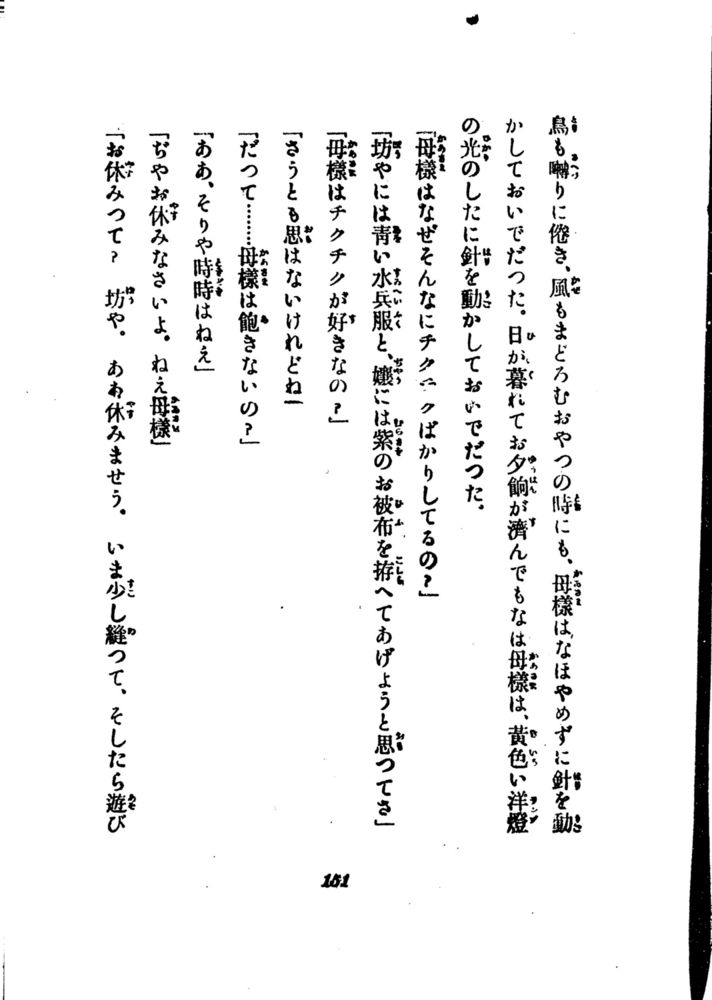 鳥も囀りに倦き、風もまどろむおやつの時にも、母様はなほやめずに針を動
かしておいでだつた。日が暮れてお夕餉が濟んでもなほ母様は、黃色い洋燈
の光のしたに針を動かしておいでだつた。
「母樣はなぜそんなにチクチクばかりしてるの?」
「坊やには靑い水兵服と、孃には紫のお被布を拵へてあげようと思つてさ」
「母樣はチクチクが好きなの?」
「さうとも思はないけれどね―
「だつて………母樣は飽きないの?」
「ああ、そりや時時はねえ」
「ぢやお休みなさいよ。ねえ母樣」
「お休みつて? 坊や。 ああ休みませう。 いま少し縫つて、そしたら遊び
151